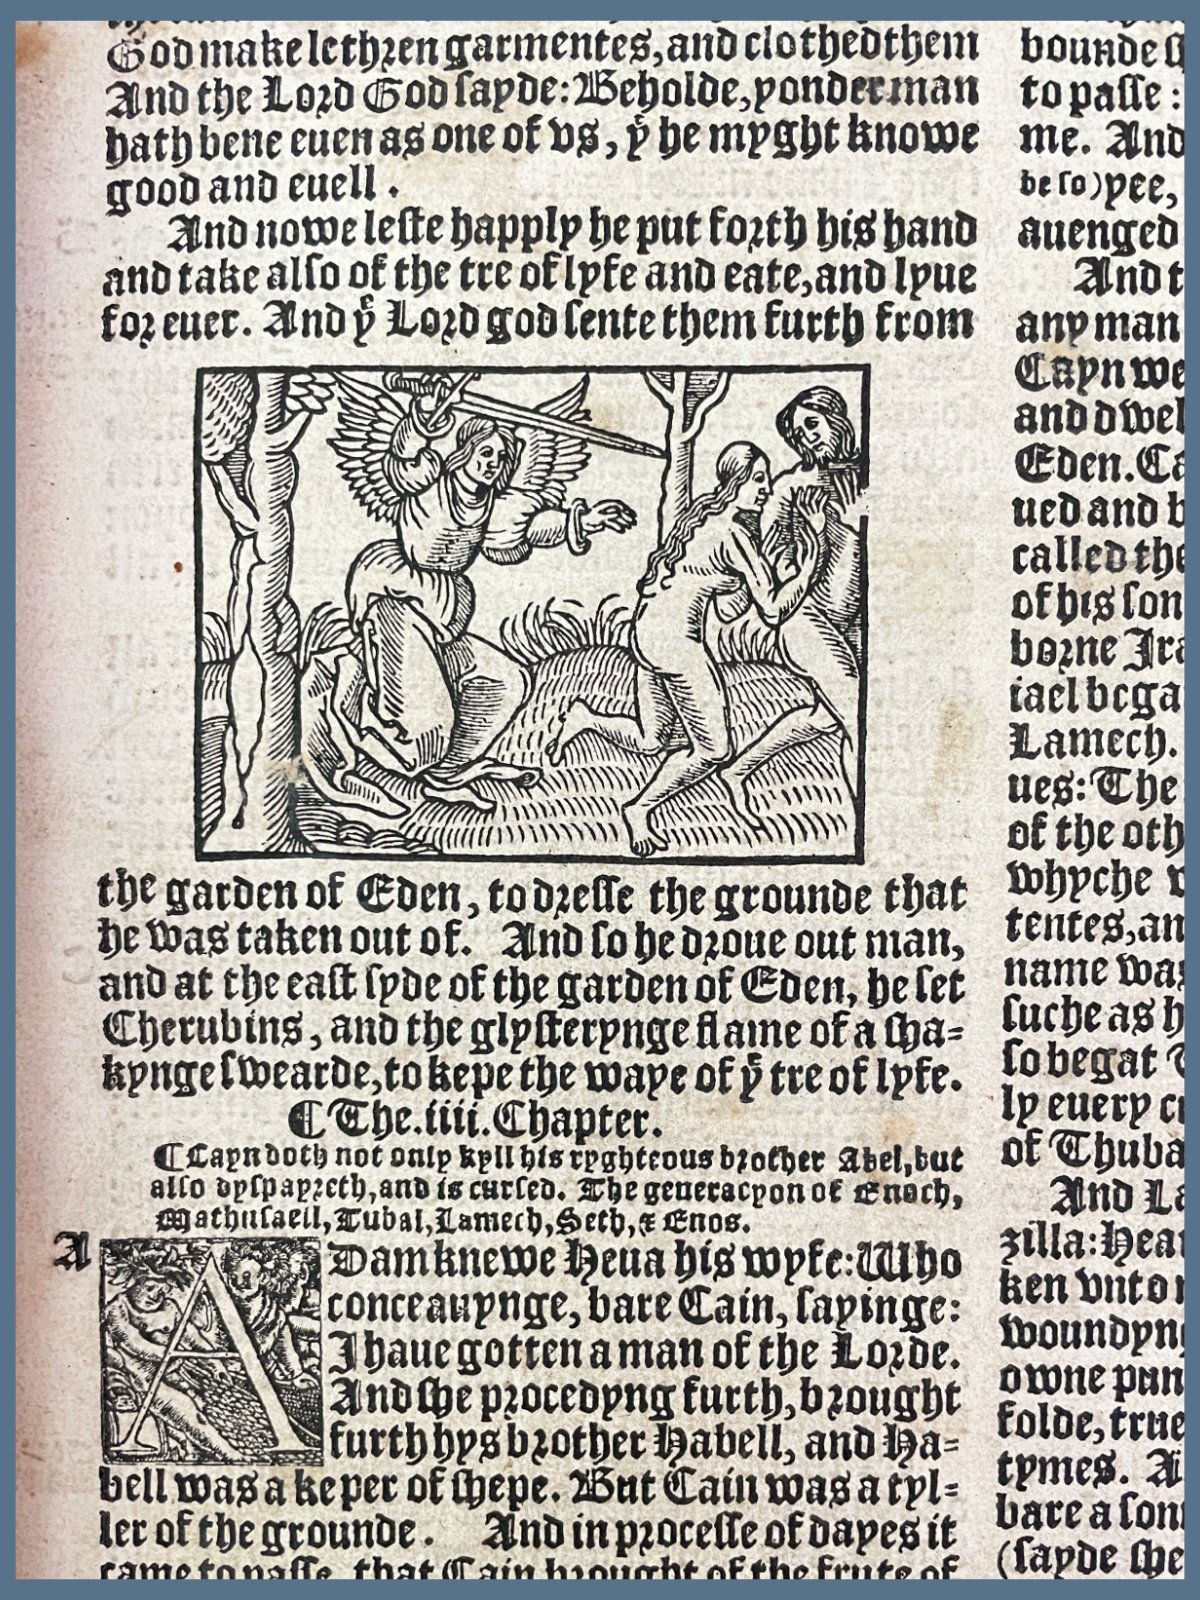 God make lethren garmentes, and clothed them
And the Lord God sayde: Beholde, yonder man
hath bene euen as one of vs, yͭ he myght knowe
good and euell.
And nowe leste happly he put forth his hand
and take also of the tre of lyfe and eate, and lyue
for euer. And yͤ Lord god sente them furth from
the garden of Eden, to dresse the grounde that
he was taken out of. And so he droue out man,
and at the east syde of the garden of Eden, he set
Cherubins, and the glysterynge flame of a sha=
kynge swearde, to kepe the waye of yͤ tre of lyfe.
¶ The.iiii.Chapter.
¶ Cayn doth not only kyll his ryghteous brother Abel, but
also dyspayreth, and is cursed. The generacyon of Enoch,
Mathusaell, Tubal, Lamech, Seth, & Enos.
A
ADam knewe Heua his wyfe: Who
conceauynge, bare Cain, sayinge:
I haue gotten a man of the Lorde.
And she procedyng furth, brought
furth hys brother Habell, and Ha=
bell was a keper of shepe. But Cain was a tyl=
ler of the grounde. And in processe of dayes it
came to passe, that Cain brought of the frute of
bounde
to passe:
me. And
be so) yee,
auenged
And
any man
Cayn we
and dwel
Eden. Ca
ued and b
called the
of his son
borne Ira
iael bega
Lamech.
ues: The
of the oth
whyche
tentes, an
name was
suche as h
so begat
ly euery
of Thuba
And La
zilla: Hear
ken vnto
woundyn
owne pun
folde, true
tymes. A
bare a son
(sayde she